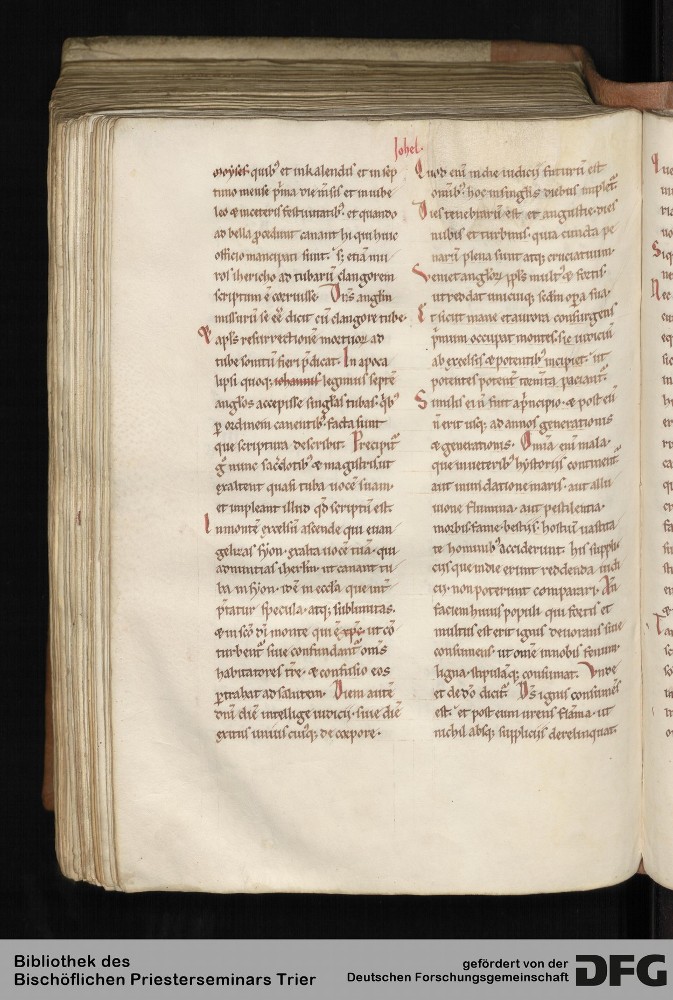 Johel.
moyses quib; et in kalendis et in sep
timo mense p̄ma die m̄sis et in iube
leo & in ceteris festiuitatib; et quando
ad bella p̄cedunt canant hi qui huic
officio mancipati sunt. s; etiā mu
ros ihericho ad tubarū clangorem
scriptum ē corruisse. Dn̄s angl̄m
missurū se eē dicit cū clangore tube.
& apl̄s resurrectionē mortuoꝝ ad
tube sonitū fieri p̄dicat. In apoca
lipsi quoq; iohannis legimus septē
angl̄os accepisse singl̄as tubas. q̄b;
ꝑ ordinem canentib; facta sunt
que scriptura describit. Precipit᷑
g̊ nunc sac̄dotib; & magistris ut
exaltent quasi tuba uocē suam.
et impleant illud qd̄ scriptū est
In montē excelsū ascende qui euan
gelizas syon. exalta uocē tuā. qui
adnuntias iherl̄m. ut canant tu
ba in syon. idē in eccl̄a que int̄
p̄tatur specula. atq; sublimitas.
& in sc̄o dī monte qui ē xp̄c. ut cō
turbent᷑ siue confundant᷑ om̄s
habitatores tr̄e. & confusio eos
ꝑtrahat ad salutem. Diem autē
dn̄i diē intellige iudicii. siue diē
exitus unius cuiusq; de corpore.
Quod enī in die iudicij futurū est
om̄ib; hoc in singl̄is diebus implet᷑.
Dies tenebrarū est et angustie. dies
nubis et turbinis. quia cuncta pe
narū plena sunt atq; cruciatuum.
Veniet angl̄oꝝ ppl̄s mult᷑ & fortis.
ut reddat unicuiq; scdm̄ oꝑa sua.
Et sicut mane et aurora consurgens
p̄mum occupat montes. sic iudiciū
ab excelsis & potentib; incipiet. ut
potentes potent᷑ torm̄ta paciant᷑.
Similis ei n̄ fuit a p̄ncipio. & post eū
n̄ erit usq; ad annos generationis
& generationis. Omīa enī mala.
que in ueterib; hystorijs continent᷑
aut inundatione maris. aut allu
uione fluminū. aut pestilentia.
morbis. fame. bestijs. hostiū uastita
te hominib; acciderunt. his suppli
cijs que in die erunt reddenda iudi
cij. non poterunt comparari. An̄
faciem huius populi qui fortis et
multus est erit ignis deuorans siue
consumens. ut om̄e in nobis fenum.
ligna. stipulāq; consumat. Vnde
et de dō dicit᷑. Ds̄ ignis consumēs
est. et post eum urens flāma. ut
nichil absq; supplicijs derelinquat.
Bibliothek des
Bischöflichen Priesterseminars Trier
gefördert von der
Deutschen Forschungsgemeinschaft
DFG